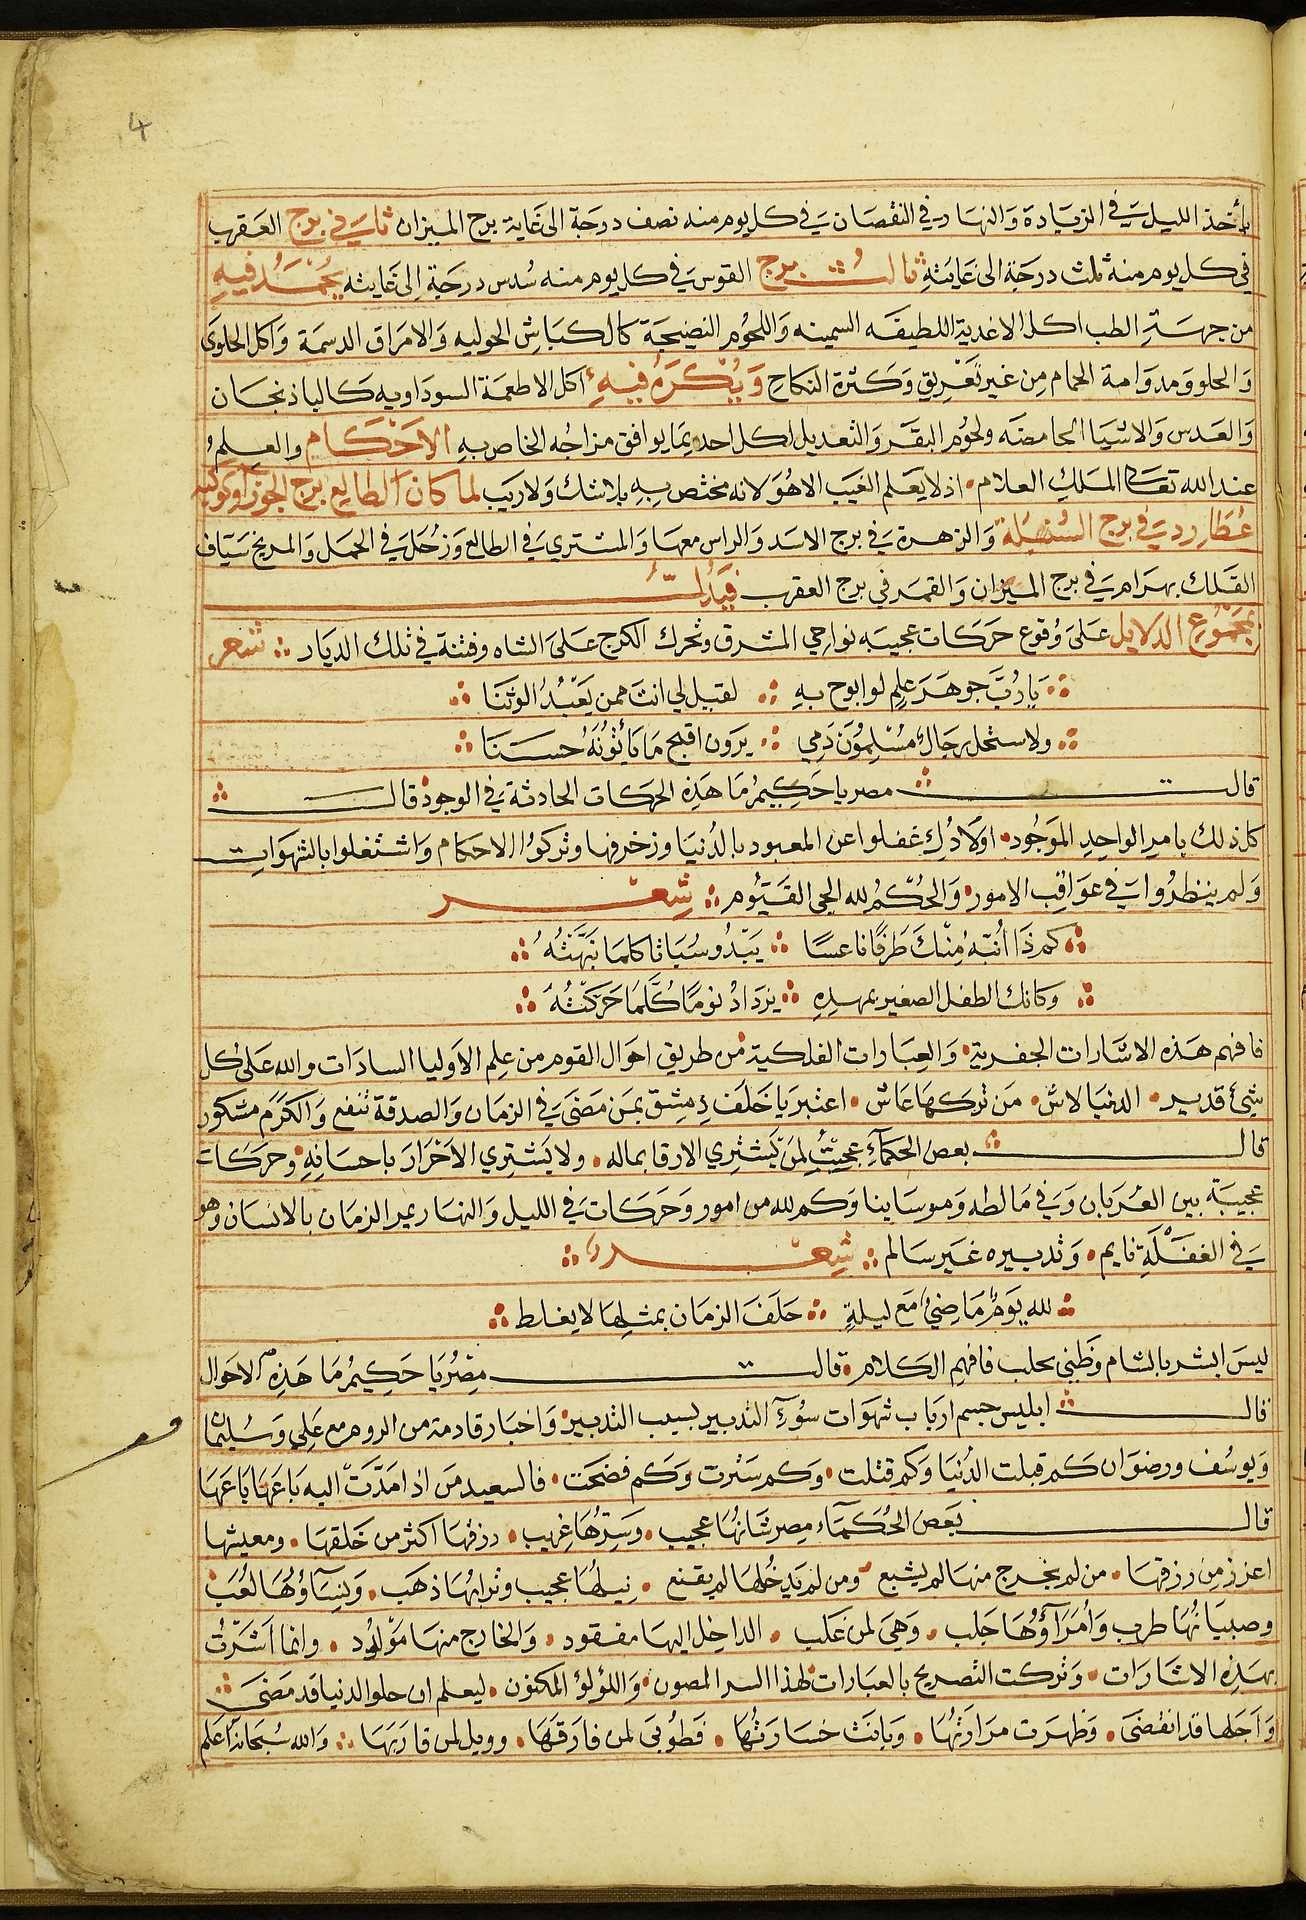 4
يأخذ الليل في الزيادة والنهار في النقصان في كل يوم منه نصف درجة الى غاية برج الميزان ثاني في برج العقرب
في كل يوم منه ثلث درجة الى غايته ثالث برج القوس في كل يوم منه سدس درجة الى غايته يحمد فيه
من جهة الطب اكل الاغدية اللطيفه السمينه واللحوم النضيجة كالكباش الحوليه والامراق الدسمة واكل الحلوى
والحلو ومدوامة الحمام من غير تعريق وكثرة النكاح ويكره فيه اكل الاطعمة السوداويه كالباذنجان
والعدس والاشيا الحامضه ولحوم البقر والتعديل لكل احد بما يوافق مزاجه الخاص به الاحكام والعلم
عند الله تعالى الملك العلام اذ لا يعلم الغيب الا هو لانه مختص به بلا شك ولا ريب لما كان الطالع برج الجوزا وكوكبه
عطارد في برج السنبلة والزهرة في برج الاسد والراس معها والمشتري في الطالع وزحل في الحمل والمريخ سياف
الفلك بهرام في برج الميزان والقمر في برج العقرب فيدلت
مجموع الدلايل على وقوع حركات عجيبه نواحي المشرق وتحرك الكرج على الشاه وفتنة في تلك الديار شعر
يارب جوهر علم لو ابوح به لقيل لي انت ممن يعبد الوثنا
ولاستحل رجال مسلمون دمي يرون اقبح ما يأتونه حسنا
قالت مصر يا حكيم ما هذه الحركات الحادثة في الوجود قالت
كل ذلك بامر الواحد الموجود اولادك غفلوا عن المعبود بالدنيا وزخرفها وتركوا الاحكام واشتغلوا بالشهوات
ولم ينظروا في عواقب الامور والحكم لله الحي القيوم شعر
كم ذا أنبه منك طرفا ناعسا يبدو سباتا كلما نبهته
وكانك الطفل الصغير بمهده يزداد نوما كلما حركته
فافهم هذه الاشارات الجفرية والعبارات الفلكية من طريق احوال القوم من علم الاوليا السادات والله على كل
شيء قدير الدنيا لاش من تركها عاش اعتبر يا خلف دمشق بمن مضى في الزمان والصدقة تنفع والكرم مشكور
قال بعض الحكماء عجبت لمن يشتري الارقا بماله ولا يشتري الاحرار باحسانه وحركات
عجيبة بين العربان وفي مالطه وموساينا وكم لله من امور وحركات في الليل والنهار يمر الزمان بالانسان وهو
في الغفلة نايم وتدبيره غير سالم شعر
لله يوم ماضي مع ليلة حلف الزمان بمثلها لا يغلط
ليس ابشر بالشام وظبي بحلب فافهم الكلام قالت مصر يا حكيم ما هذه الاحوال
قالت ابليس جسم ارباب شهوات سوء التدبير بسبب التدبير واخبار قادمة من الروم مع علي وسليمان
ويوسف ورضوان كم قبلت الدنيا وكم قتلت وكم سترت وكم فضحت فالسعيد من اذ امدت اليه باعها باعها
قال بعض الحكماء مصر شانها عجيب وسرها غريب رزقها اكثر من خلقها ومعيشها
اعز من رزقها من لم يخرج منها لم يشبع ومن لم يدخلها لم يقنع نيلها عجيب وترابها ذهب ونساؤها لعب
وصبيانها طرب وامراؤها جلب وهي لمن غلب الداخل اليها مفقود والخارج منها مولود وانما اشرت
بهذه الاشارات وتركت التصريح بالعبارات لهذا السر المصون واللؤلؤ المكنون ليعلم ان حلو الدنيا قد مضى
واجلها قد انقضى وظهرت مرارتها وبانت خسارتها فطوبى لمن فارقها وويل لمن قاربها والله سبحانه اعلم